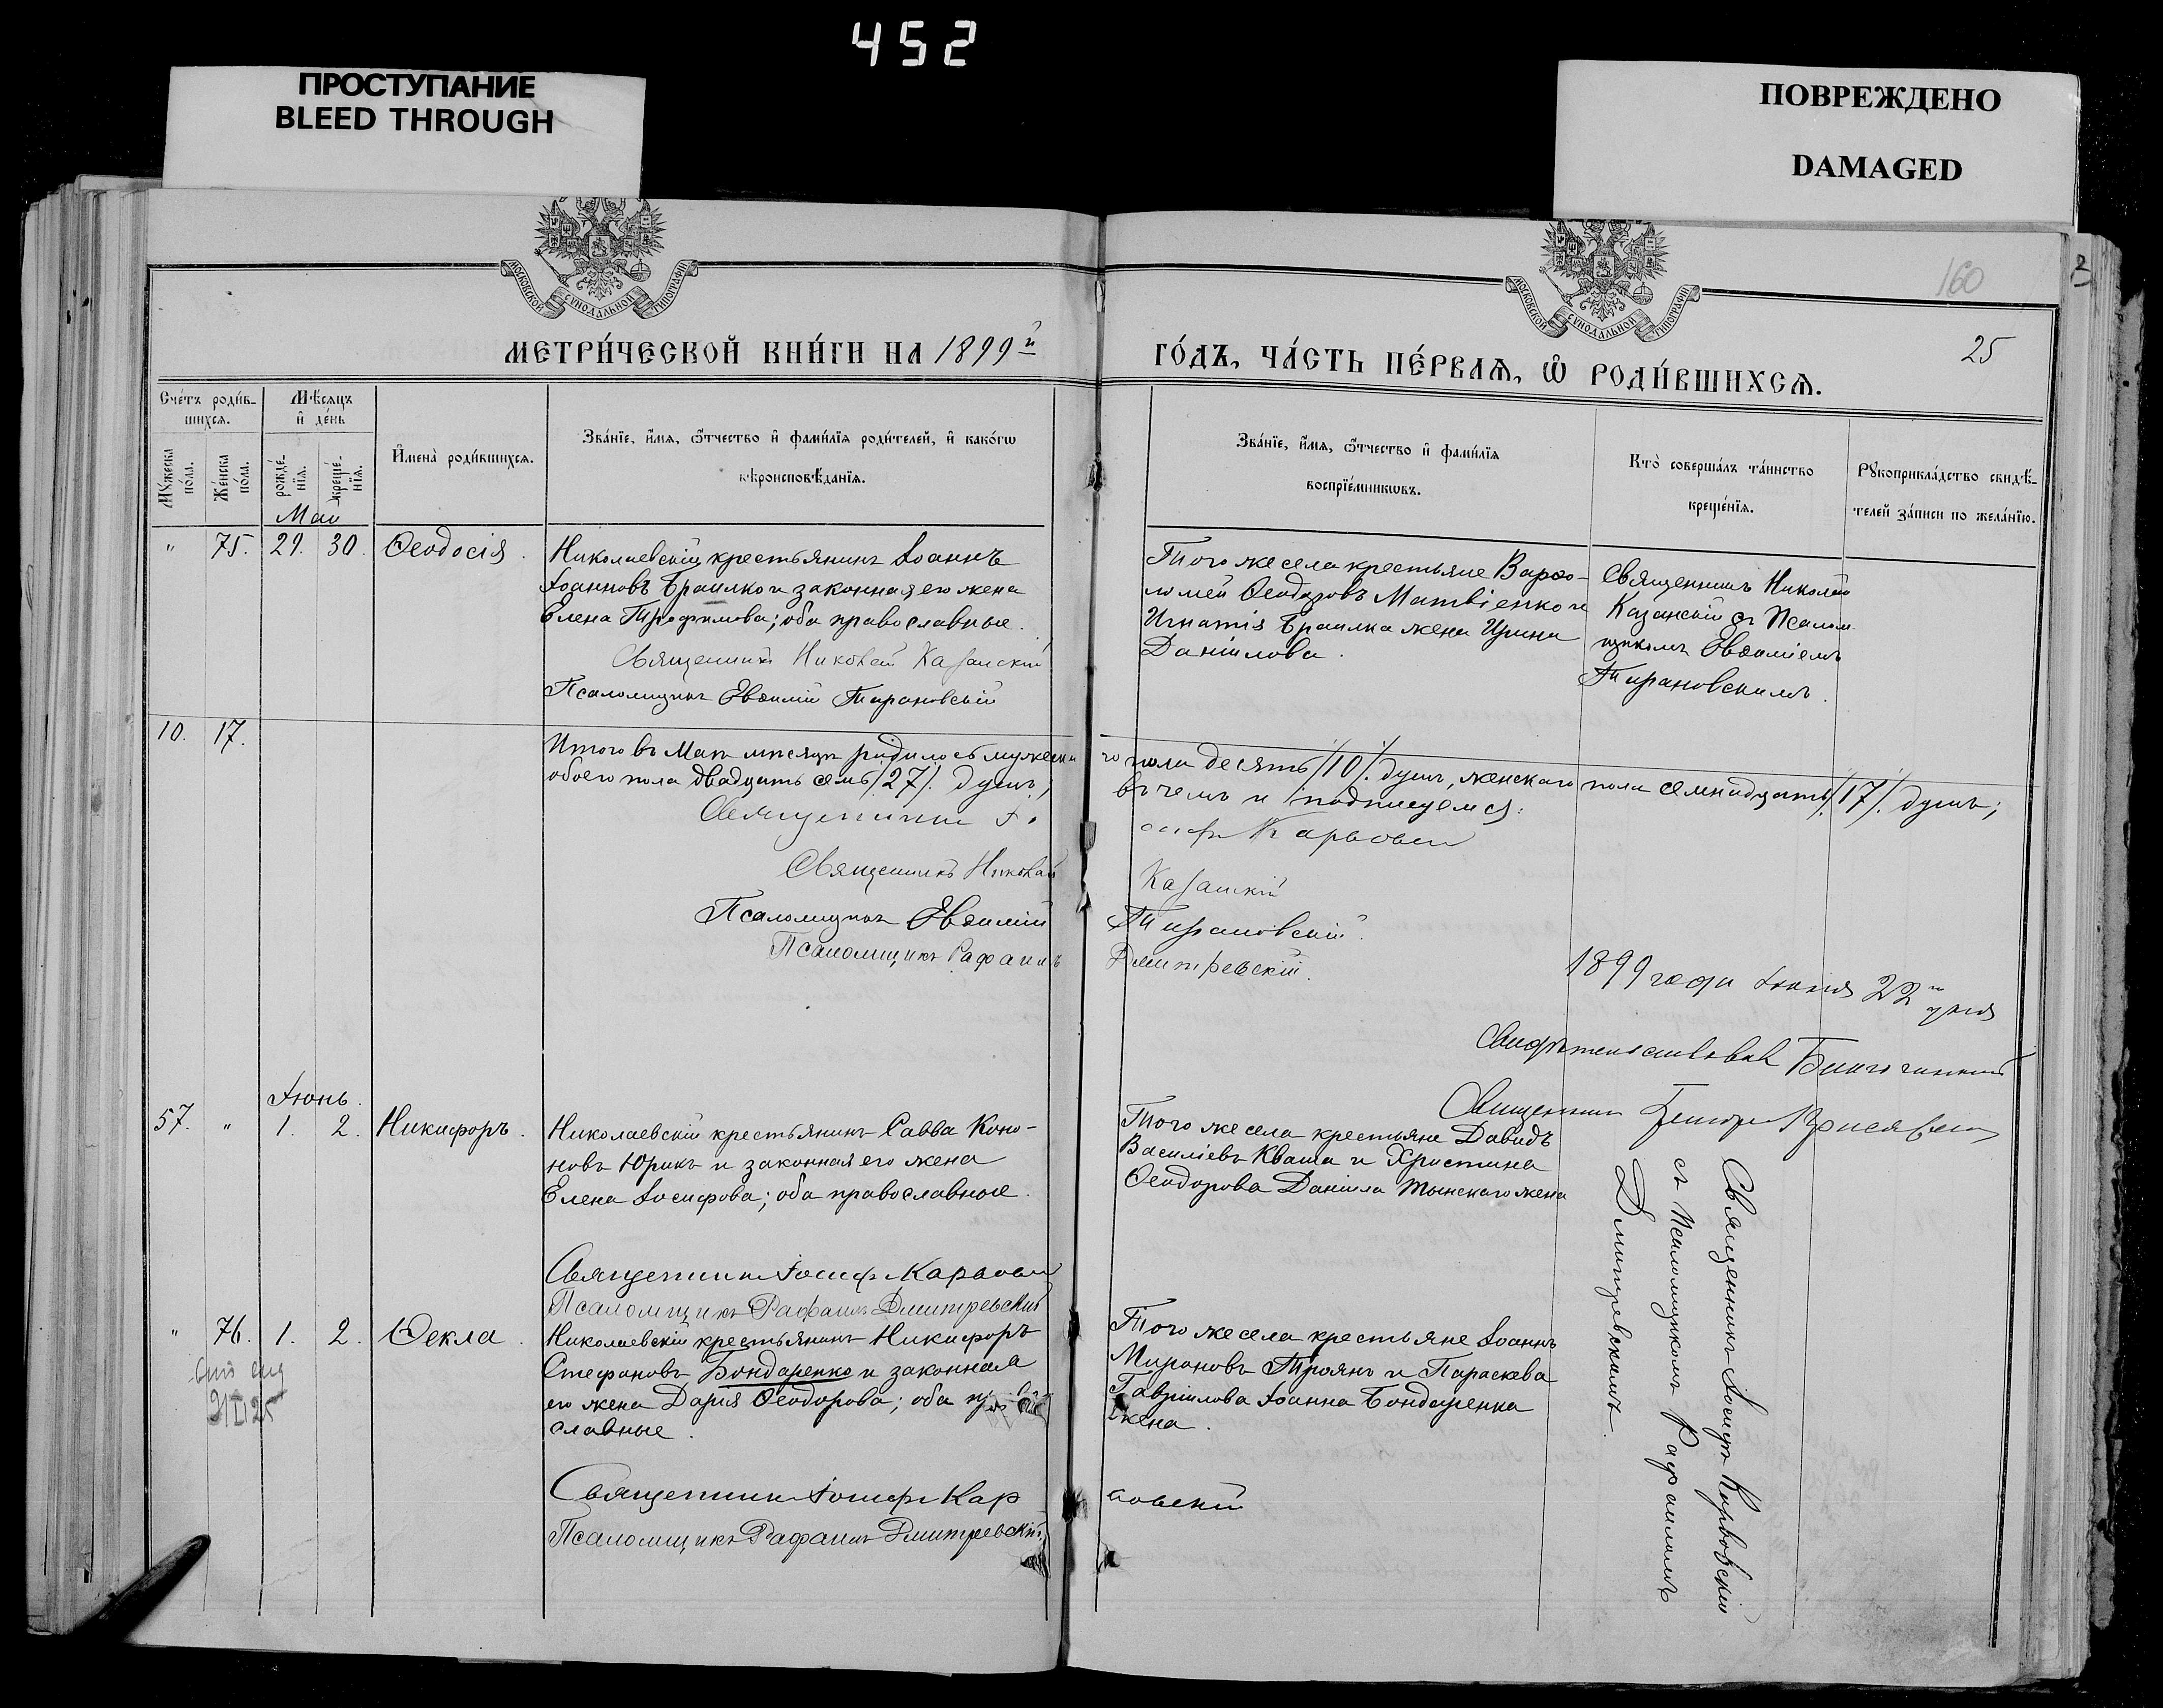 452
ПРОСТУПАНИЕ
BLEED THROUGH
ПОВРЕЖДЕНО
DAMAGED
МОСКОВСКОЙ СѴНОДАЛЬНОЙ ТИПОГРАФІИ
МОСКОВСКОЙ СѴНОДАЛЬНОЙ ТИПОГРАФІИ
160
25
МЕТРИ́ЧЕСКОЙ КНИ́ГИ НА 1899й
ГО́ДЪ, ЧА́СТЬ ПЕ́РВАѦ, Ѡ҆ РОДИ́ВШИХСѦ.
Сче́тъ роди́в-
шихсѧ.
Мꙋжеска по́ла.
Же́нска по́ла.
Мѣ́сѧцъ
и҆ де́нь
рожде́-
нїѧ.
креще́-
нїѧ.
И҆мена̀ роди́вшихсѧ.
Зва́нїе, и҆́мѧ, ѻ҆́тчество и҆ фами́лїѧ роди́телей, и҆ како́гѡ
вѣроисповѣ́данїѧ.
Зва́нїе, и҆́мѧ, ѻ҆́тчество и҆ фами́лїѧ
воспрїе́мникѡвъ.
Кто̀ соверша́лъ та́инство
креще́нїѧ.
Рꙋкоприкла́дство свидѣ́-
телей за́писи по жела́нїю.
Май
" 75. 29. 30. Ѳеодосія.
Николаевскій крестьянинъ Іоаннъ
Іоанновъ Браилко и законная его жена
Елена Трофимова; оба православные.
Священникъ Николай Казанскій
Псаломщикъ Евѳимій Тарановскій
Того же села крестьяне Варѳо-
ломей Ѳеодоровъ Матвіенко и
Игнатія Браилка жена Ирина
Даніилова.
Священникъ Николай
Казанскій съ Псалом
щикомъ Евѳиміемъ
Тарановскимъ.
10. 17.
Итого въ Маѣ мѣсяцѣ родилось мужеска го пола десять /10/. душъ, женскаго пола семнадцать /17/. душъ;
обоего пола двадцать семь /27/. душъ, въ чемъ и подписуемся:
Священникъ Іосифъ Карвовскій
Священникъ Николай Казанскій
Псаломщикъ Евѳимій Тарановскій.
Псаломщикъ Рафаилъ Дмитревскій.
1899 года Іюня 22го дня
Свидѣтельствовалъ Благочинный
Священникъ
Іюнь.
57. " 1. 2. Никифоръ.
Николаевскій крестьянинъ Савва Коно-
новъ Юрикъ и законная его жена
Елена Іосифова; оба православные.
Священникъ Іосифъ Карвовскій
Псаломщикъ Рафаилъ Дмитревскій
Того же села крестьяне Давидъ
Василіевъ Кваша и Христина
Ѳеодорова Даніила Тынскаго жена
Священникъ Іосифъ Карвовскій
съ Псаломщикомъ Рафаиломъ
Дмитревскимъ.
" 76. 1. 2. Ѳекла.
Николаевскій крестьянинъ Никифоръ
Стефановъ Бондаренко и законная
его жена Дарія Ѳеодорова; оба право
славные.
Священникъ Іосифъ Карвовскій
Псаломщикъ Рафаилъ Дмитревскій.
Того же села крестьяне Іоаннъ
Мироновъ Троянъ и Параскева
Гавріилова Іоанна Бондаренка
жена.